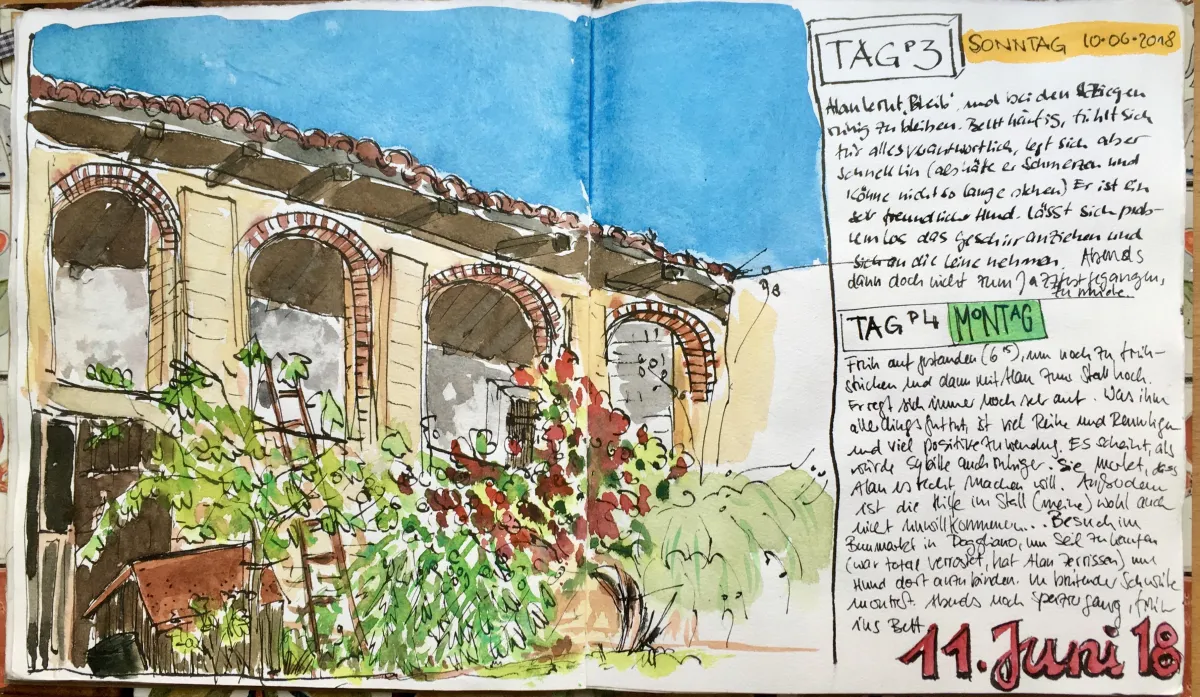 TAG P3
SONNTAG 10.06.2018
Alan lernt „Bleib" und bei den Ziegen
ruhig zu bleiben. Bellt häufig, fühlt sich
für alles verantwortlich, legt sich aber
schnell hin (als hätte er Schmerzen und
könne nicht so lange stehen) Er ist ein
sehr freundlicher Hund. Lässt sich prob-
lemlos das Geschirr anziehen und
sich an die Leine nehmen. Abends
dann doch nicht zum Jazzfest gegangen,
zu müde.
TAG P4 MONTAG
Früh aufgestanden (6 15), um noch zu früh-
stücken und dann mit Alan zum Stall hoch.
Er regt sich immer noch sehr auf. Was ihm
allerdings guttut, ist viel Ruhe und
und viel positive Zuwendung. Es scheint, als
würde Sybille auch ruhiger. Sie merkt, dass
Alan es recht machen will. Außerdem
ist die Hilfe im Stall (meine) wohl auch
nicht unwillkommen... Besuch im
Baumarkt in Dogliano, um Seil zu kaufen
(war total verrostet, hat Alan zerrissen) um
Hund dort anzubinden. In brütender Schwüle
montiert. Abends noch Spaziergang, früh
ins Bett.
11. Juni 18